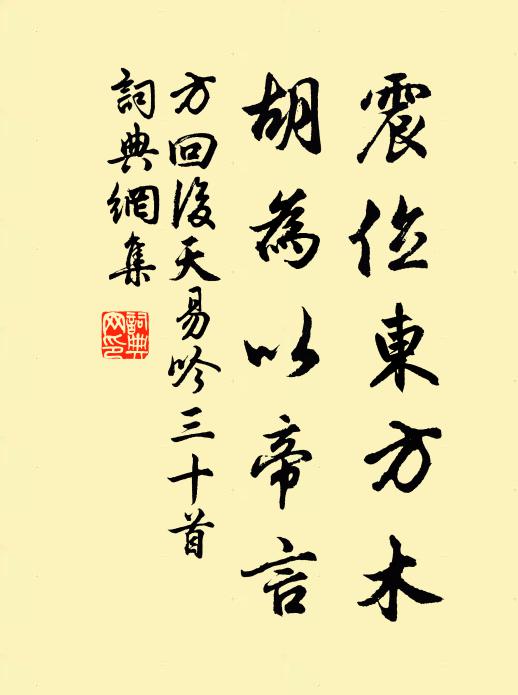 震位東方木
胡為以帝言
方回後天易吟三十首
詞典網集
詞典網印